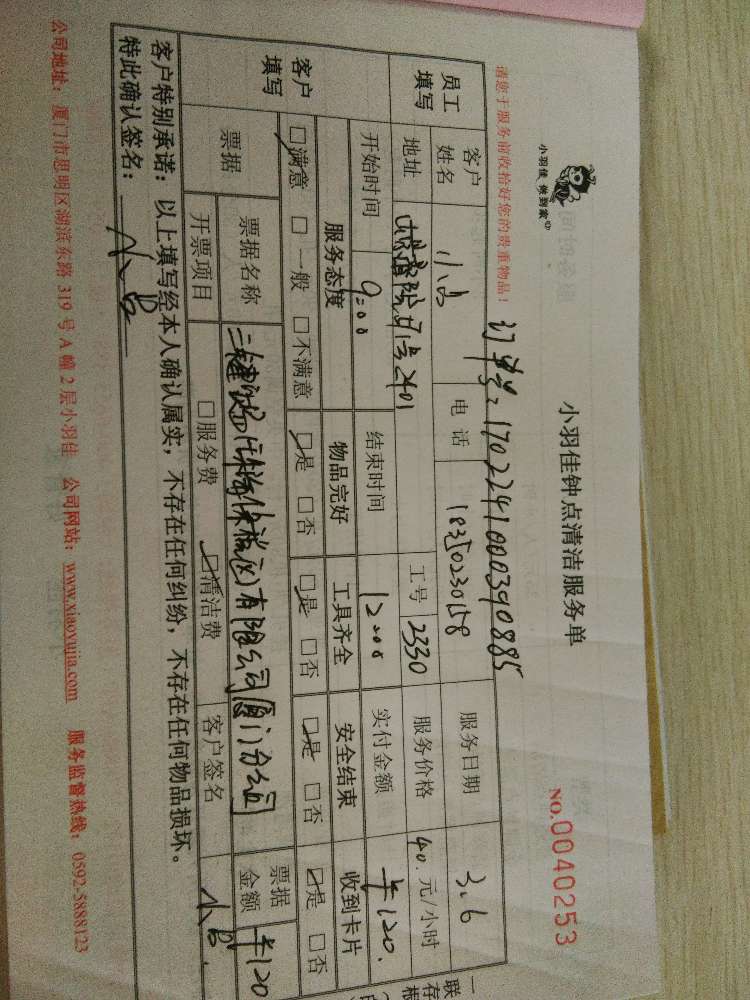 小羽佳 做到家
小羽佳钟点清洁服务单
NO.0040253
请您于服务前收拾好您的贵重物品!
订单号:1702241000390885
员工填写
客户姓名 电话 18350230158 服务日期 3.6
地址 号2401 工号 2330 服务价格 40.元/小时
开始时间 9:00 结束时间 12:00 实付金额 ¥120.
客户填写
服务态度 物品完好 工具齐全 安全结束 收到卡片
☑满意 □一般 □不满意 ☑是 □否 ☑是 □否 ☑是 □否 ☑是 □否
票据 票据名称 有限公司厦门分公司 票据金额 ¥120
开票项目 □服务费 ☑清洁费 客户签名
客户特别承诺:以上填写经本人确认属实,不存在任何纠纷,不存在任何物品损坏。
特此确认签名:
公司地址:厦门市思明区湖滨东路 319 号 A 幢 2 层小羽佳 公司网站:www.xiaoyujia.com 服务监督热线:0592-5888123
一联存根